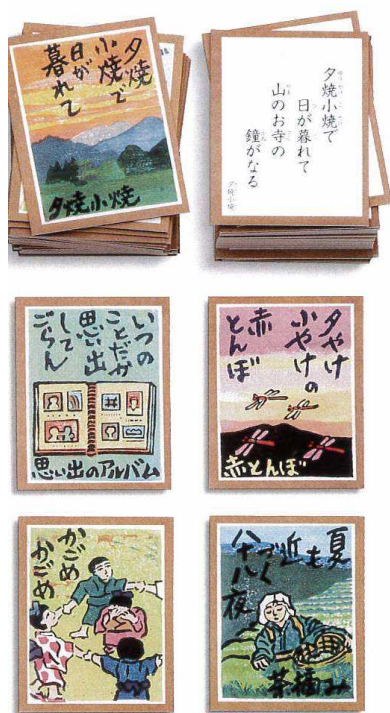 夕焼
小焼で
日が
暮れて
夕焼小焼
夕焼小焼で
日が暮れて
山のお寺の
鐘がなる
夕焼小焼
いつの
ことだか
思い出
して
ごらん
思い出のアルバム
夕やけ
小やけの
赤
とんぼ
赤とんぼ
かごめ
かごめ
夏も
近
づく
八十八夜
茶摘み